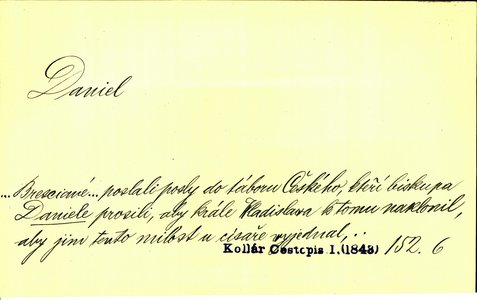 Daniel
...Bresciané... poslali posly do táboru Českého, kteří biskupa
Daniele prosili, aby krále Vladislava k tomu naklonil,
aby jim tento milost u císaře vyjednal,..
Kollár Cestopis I.(1843) 152. 6